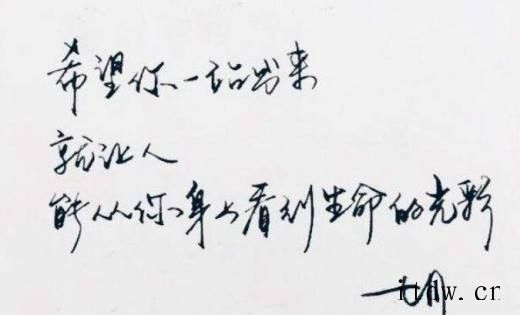 希望你一站出来
就让人
能从你身上看到生命的光彩
itdw.cr